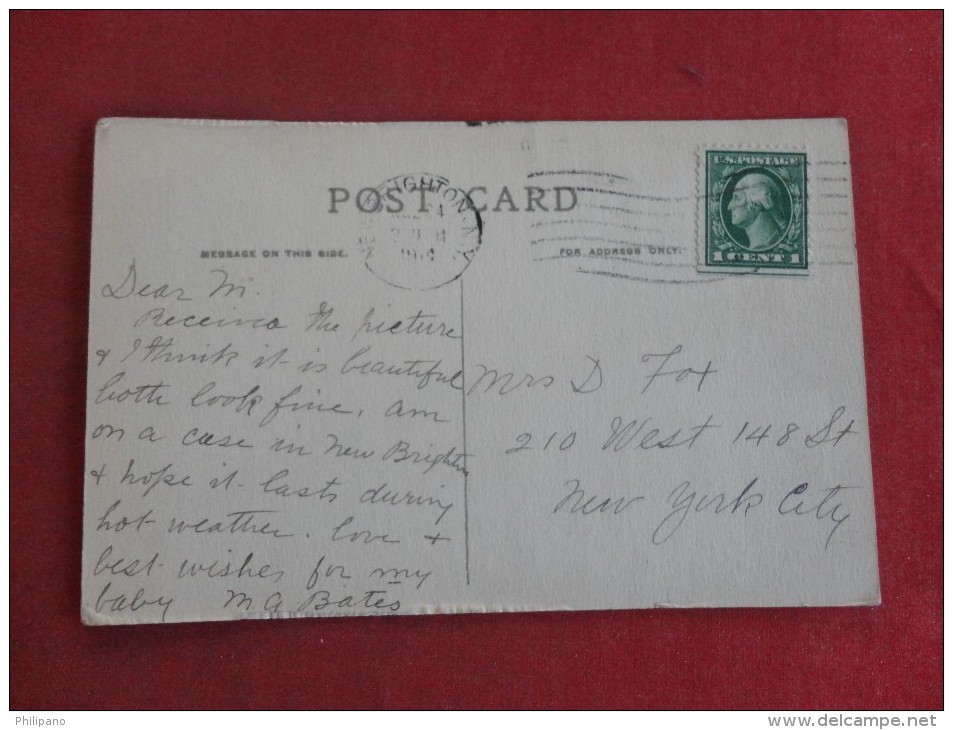 POST CARD
NEW BRIGHTON, N.Y.
MESSAGE ON THIS SIDE.
FOR ADDRESS ONLY.
U.S. POSTAGE
1 CENT 1
Dear M.
Received the picture
& I think it is beautiful
both look fine. am
on a case in New Brighton
& hope it lasts during
hot weather. love &
best wishes for my
baby M A Bates
Mrs D Fox
210 West 148 St
New York City
Philipano
www.delcampe.net